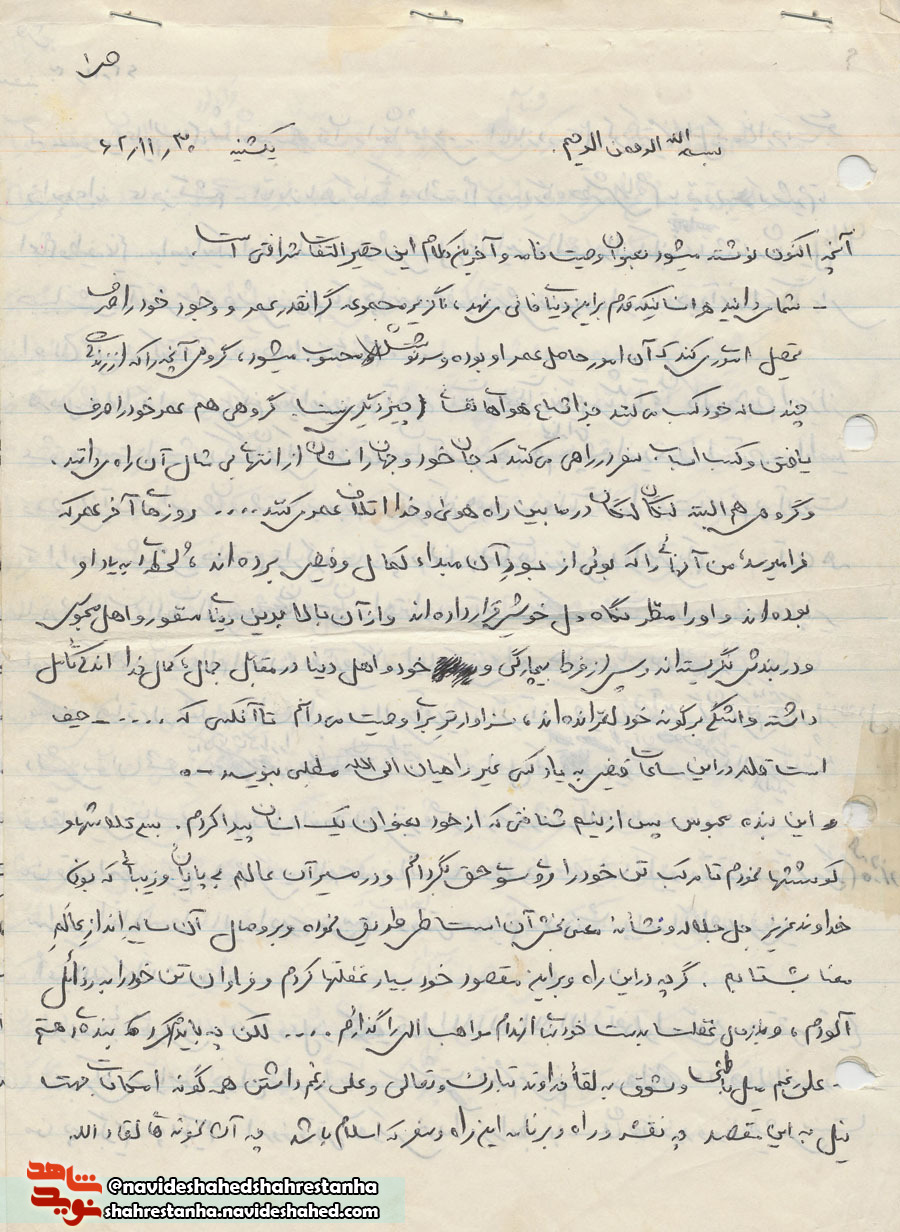 ص ۱
بسم الله الرحمن الرحیم. یکشنبه ۶۲/۱۱/۳۰
آنچه اکنون نوشته میشود بعنوان وصیت نامه و آخرین کلام این حقیر التفات شرافتی است.
– شما می دانید هر انسانیکه قدم بر این دنیای فانی می نهد، ناگزیر مجموعه گرانقدر عمر و وجود خود را صرف
تحصیل اموری کند که آن امور حاصل عمر او بوده و سرنوشتش محسوب میشود، گروهی آنچه را که از زندگی
چند ساله خود کسب می کنند جز اتباع هواهای نفسانی چیز دیگری نیست. گروهی هم عمر خود را صرف
یافتن و کسب اسباب سفر در راهی می کنند که جان خود و جهان را نشان از انتهای بی مثال آن راه می دانند.
و گروهی هم البته لنگان لنگان در ما بین راه هوی و خدا اتلاف عمر می کنند .... روزهای آخر عمر که
فرا میرسد، من آنهائی را که بوئی از عبود آن مبداء کمال و فیض برده اند، و لحظه ای به یاد او
بوده اند و او را منظر نگاه دل خویش قرار داده اند و از آن بالا بدین دنیای منفور و اهل محبوس
و در بندش نگریسته اند و سپس از فرط بیچارگی خود و اهل دنیا در مقابل جمال یا کمال خدا اندکی تأمل
داشته و اشکی بر گونه خود لغزانده اند، سزاوارتر برای وصیت می دانم تا آنکسی که ..... – حیف
است قلم در این ساعات فیض به یاد کسی غیر راهیان الی الله مطلبی بنویسد –.
و این بنده محبوس پس از نیم شناختی که از خود بعنوان یک انسان پیدا کردم. بسی تلاشها و
کوششها نمودم تا مرکب تن خود را رو سوی حق بگردانم و در مسیر آن عالم بی پایان و زیبائی که بوی
خداوند عزیز جل جلاله و نشأنه معنی بخش آن است طی طریق نموده و بر وصال آن سایه انداز عالم
معنا بشتابم. گرچه در این راه و بر این مقصود خود بسیار غفلتها کردم و فراوان تن خود را به رذائل
آلودم، و باز حال غفلت بدست خود بر اندام مواهب الهی را گذاردم .... لکن چه باید کرد که بنده ای هستم
– علی رغم میل باطنی و شوق به لقاء خداوند تبارک و تعالی و علی رغم داشتن همه گونه امکانات جهت
نیل به این مقصد چه نقشه در راه و برنامه این راه و سفر که اسلام باشد چه آن نمونه های لقاء الله
نوید شاهد
@navideshahedshahrestanha
shahrestanha.navideshahed.com